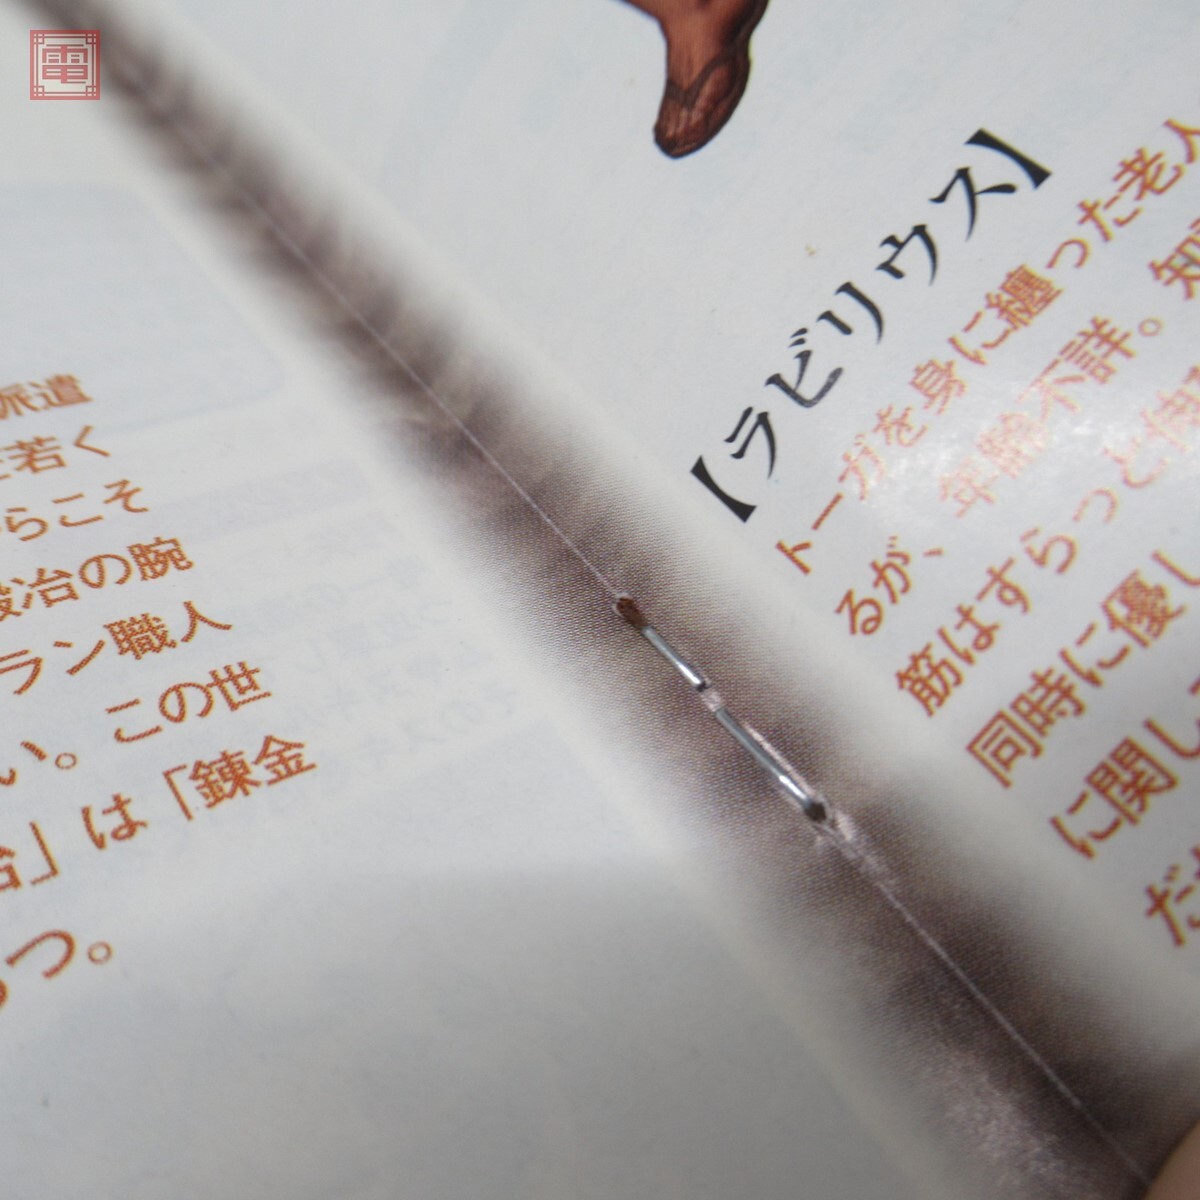 電
派遣
若く
らこそ
鍛冶の腕
ラン職人
い。この世
」は「錬金
つ。
【ラビリウス】
トーガを身に纏った老人
るが、年齢不詳。知
筋はすらっと伸
同時に優し
に関し
だ